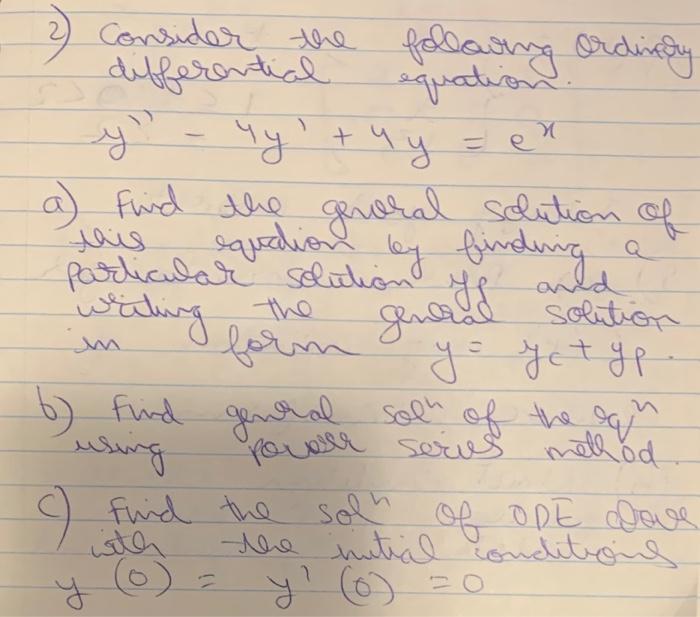 2) Consider the following Ordinary
differential equation.
y'' - 4y' + 4y = e^x
a) Find the general solution of
this equation by finding a
particular solution yp and
writing the general solution
in form y = yc + yp.
b) Find general solⁿ of the eqⁿ
using power series method.
c) Find the solⁿ of ODE above
with the initial conditions
y (0) = y' (0) = 0